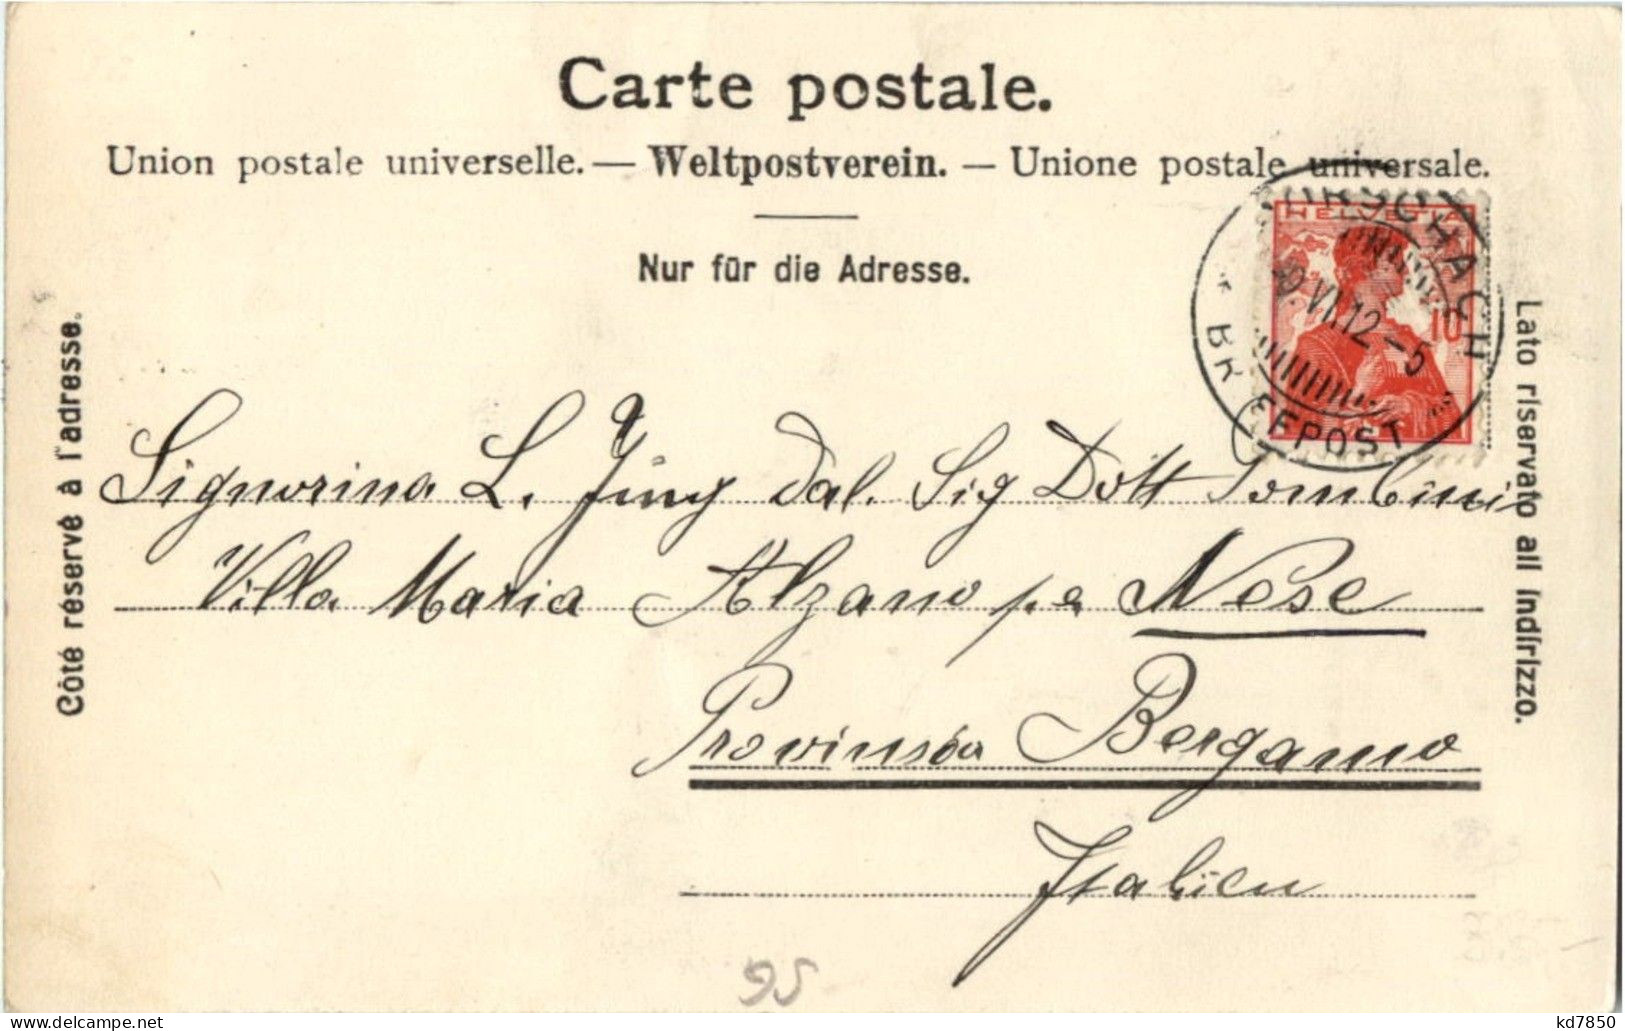 Carte postale.
Union postale universelle. — Weltpostverein. — Unione postale universale.
Nur für die Adresse.
Côté réservé à l'adresse.
Lato riservato all indirizzo.
HELVETIA
10
RORSCHACH
VI.12-5
BRIEFPOST
Signorina L. Jüng dal. Sig Dott Tombini
Villa Maria Alzano per Nese
Provinsia Bergamo
Italien
95
kd7850